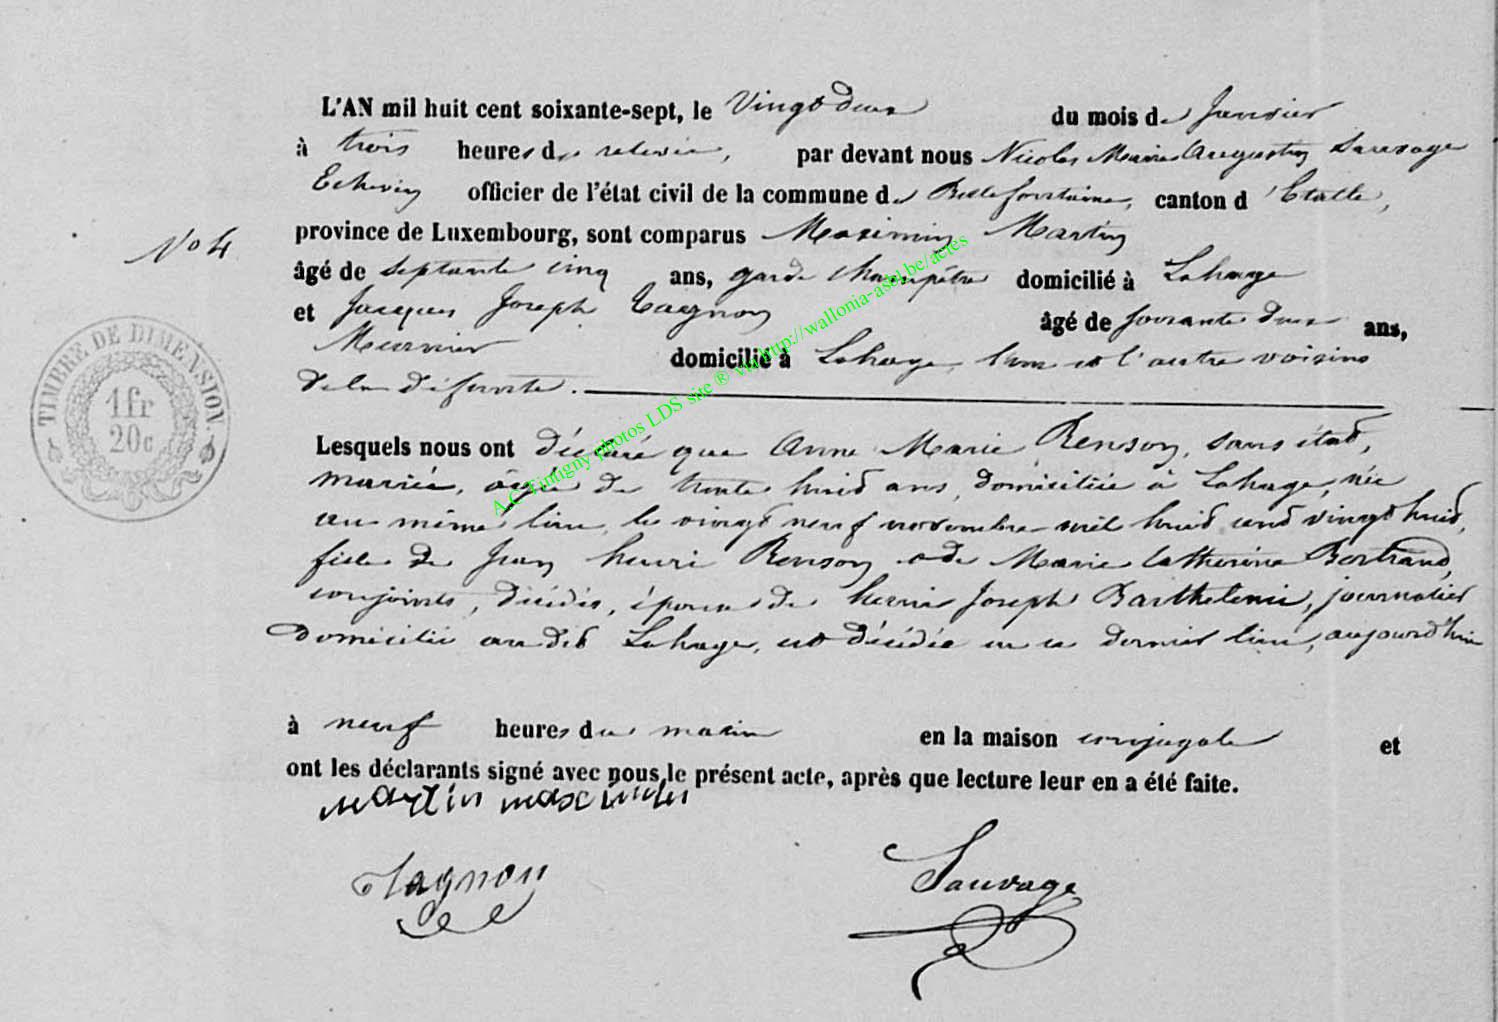 L'AN mil huit cent soixante-sept, le Vingt deux du mois de Janvier
à trois heures de relevée, par devant nous Nicolas Marie Augustin Sauvage
Echevin officier de l'état civil de la commune de Bellefontaine, canton d'Etalle,
province de Luxembourg, sont comparus Maximin Martin
No 4
âgé de septante cinq ans, garde champêtre domicilié à Lahage
et Jacques Joseph Tagnon âgé de soixante deux ans,
Meunier domicilié à Lahage, l'un et l'autre voisins
de la défunte.
TIMBRE DE DIMENSION.
1fr
20c
Lesquels nous ont déclaré que Anne Marie Renson, sans état,
mariée, âgée de trente huit ans, domiciliée à Lahage, née
au même lieu, le vingt neuf novembre mil huit cent vingt huit,
fille de Jean henri Renson et de Marie Catherine Bertrand,
conjoints, décédés, épouse de henri Joseph Barthelemi, journalier
domicilié au dit Lahage, est décédée en ce dernier lieu, aujourd'hui
à neuf heures du matin en la maison conjugale et
ont les déclarants signé avec nous le présent acte, après que lecture leur en a été faite.
martin maximin
Tagnon Sauvage
A.C Tintigny photos LDS site ® via http://wallonia-asbl.be/actes